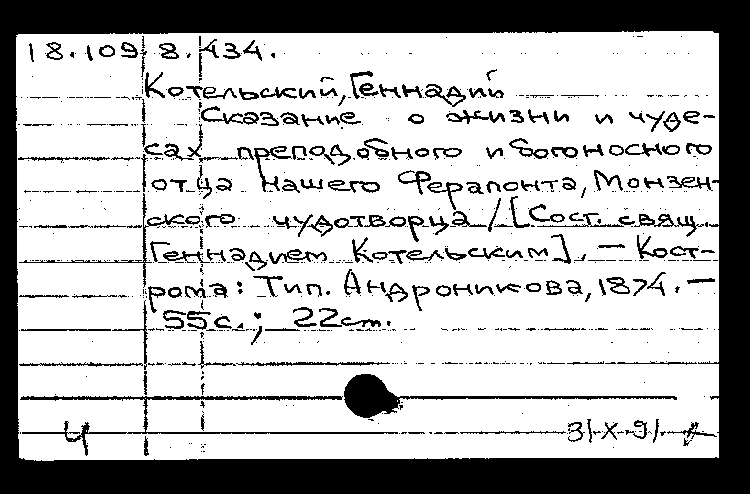 18.109.8.434.
Котельский, Геннадий
Сказание о жизни и чуде-
сах преподобного и богоносного
отца нашего Ферапонта, Монзен-
ского чудотворца / [Сост. свящ.
Геннадием Котельским]. — Кост-
рома: Тип. Андроникова, 1874. —
55с.; 22см.
Ч 31.X.91.